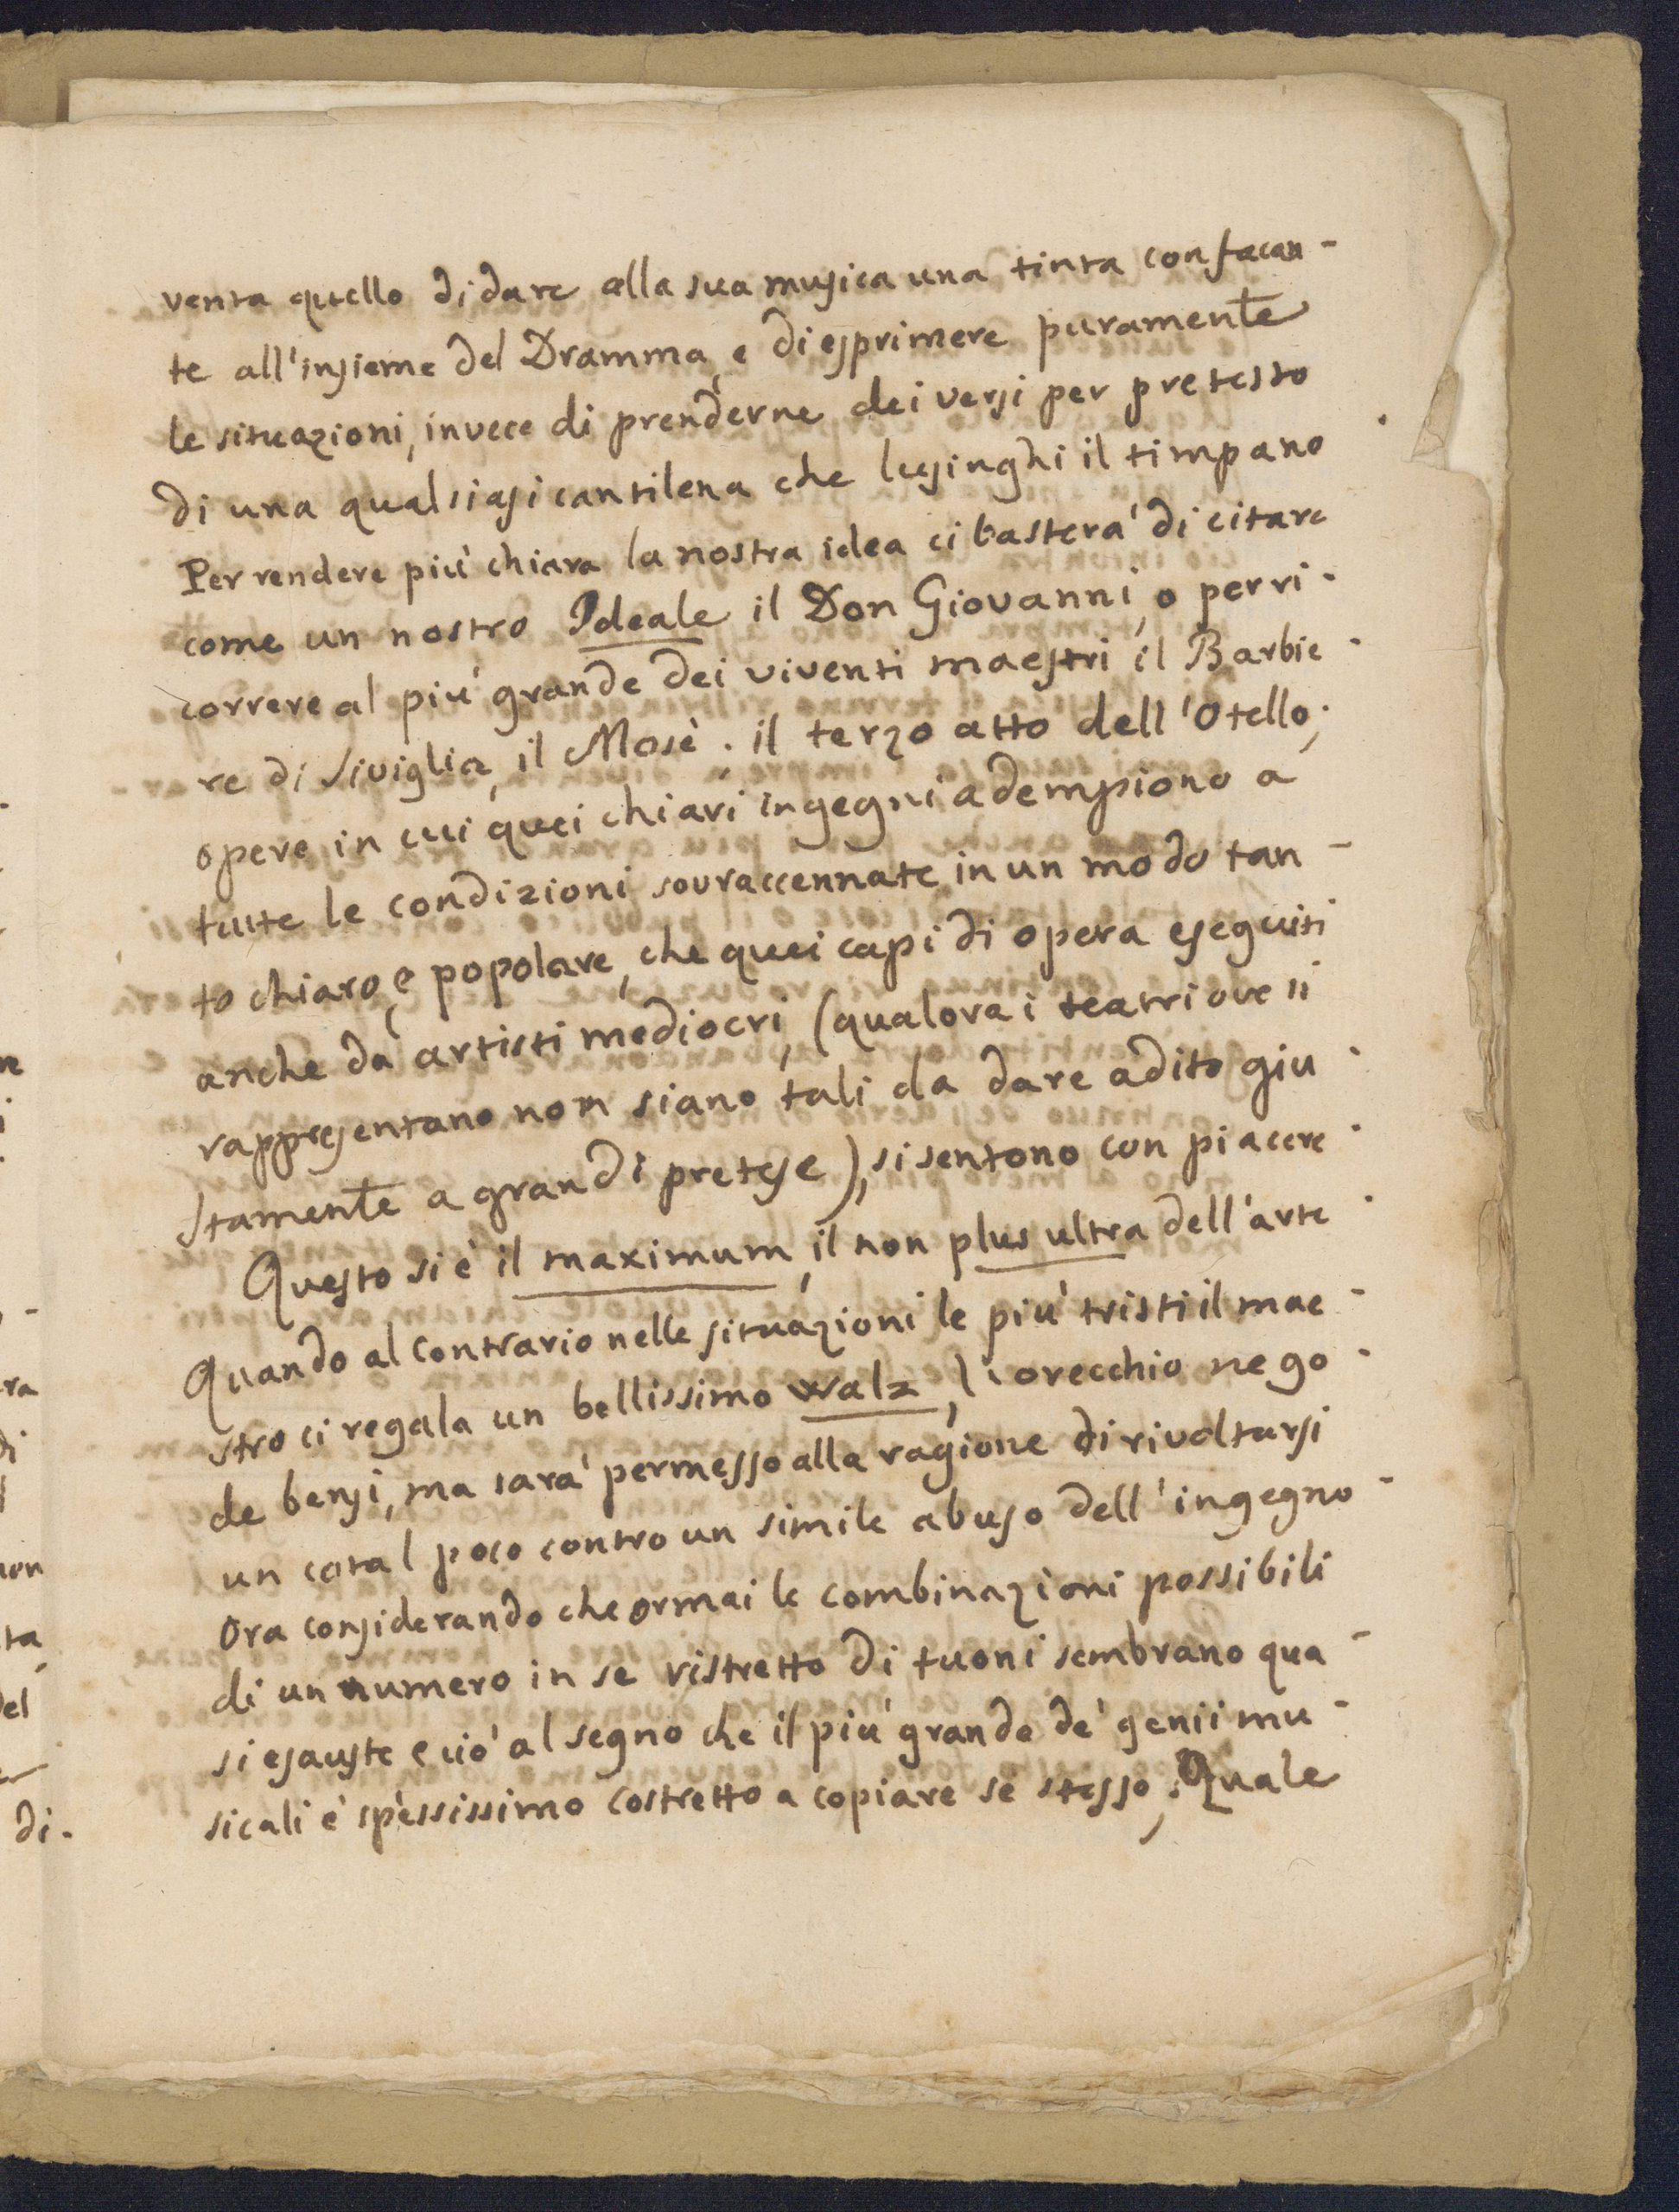 venta quello di dare alla sua musica una tinta confacan-
te all'insieme del Dramma, e di esprimere puramente
le situazioni, invece di prenderne dei versi per pretesto
di una qualsiasi cantilena che lusinghi il timpano
Per rendere più chiara la nostra idea ci basterà di citare
come un nostro Ideale il Don Giovanni, o per ri-
correre al più grande dei viventi maestri il Barbie-
re di Siviglia, il Mosè. il terzo atto dell'Otello;
opere in cui quei chiari ingegni adempiono a
tutte le condizioni sovraccennate in un modo tan-
to chiaro, e popolare, che quei capi di opera eseguiti
anche da artisti mediocri, (qualora i teatri ove si
rappresentano non siano tali da dare adito giu-
stamente a grandi pretese), si sentono con piacere.
Questo si è il maximum, il non plus ultra dell'arte.
Quando al contrario nelle situazioni le più tristi il mae-
stro ci regala un bellissimo walz, l'orecchio ne go-
de bensi, ma sarà permesso alla ragione di rivoltarsi
un cotal poco contro un simile abuso dell'ingegno-
Ora considerando che ormai le combinazioni possibili
di un numero in se ristretto di tuoni sembrano qua-
si esauste e ciò al segno che il più grande de' genii mu-
sicali è spessissimo costretto a copiare se stesso; Quale
di.